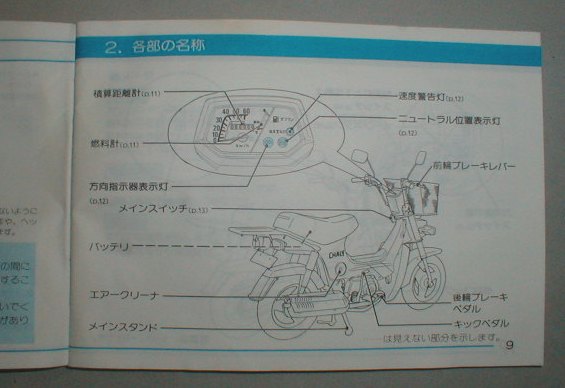 2. 各部の名称
積算距離計(p.11)
燃料計(p.11)
方向指示器表示灯
(p.12)
メインスイッチ(p.13)
バッテリ
エアークリーナ
メインスタンド
速度警告灯(p.12)
ニュートラル位置表示灯
(p.12)
前輪ブレーキレバー
後輪ブレーキ
ペダル
キックペダル
は見えない部分を示します。
9
40 60
30
km/h
CHALY
ないように
ます。
の間に
するこ
いでく
があり